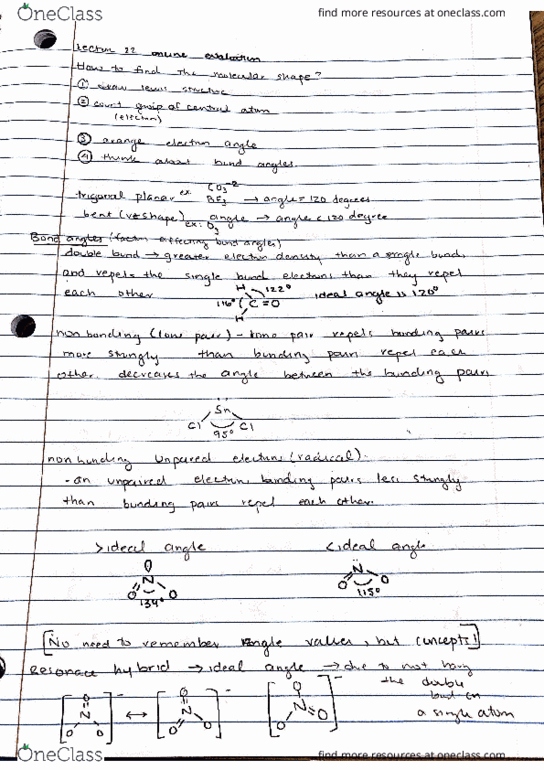 OneClass
find more resources at oneclass.com
Lecture 22 online evaluation
How to find The molecular shape?
① draw lewis structure
② count group of central atom
(electron)
③ arrange electron angle
④ think about bond angles.
trigonal planar ex: CO3-2 BF3 → angle = 120 degrees
bent (v-shape) ex: O3 angle → angle < 120 degree
Bond angles (factors affecting bond angles)
double bond → greater electron density than a single bond,
and repels the single bond electrons than they repel
each other
H 122° ideal angle is 120°
116° ( C = O
H
non bonding (lone pair) - lone pair repels bonding pairs
more strongly than bonding pairs repel each
other. decreases the angle between the bonding pairs
Sn
Cl Cl
95°
non bonding unpaired electron (radical).
- an unpaired electron bonding pairs less strongly
than bonding pairs repel each other.
> ideal angle < ideal angle
O
N N
O O O O
134° 115°
[No need to remember angle values, but concepts!]
Resonace hybrid → ideal angle → due to not having
the double
bond on
a single atom
[O N O O]- ↔ [O N O O]- [O N = O O]-
OneClass
find more resources at oneclass.com